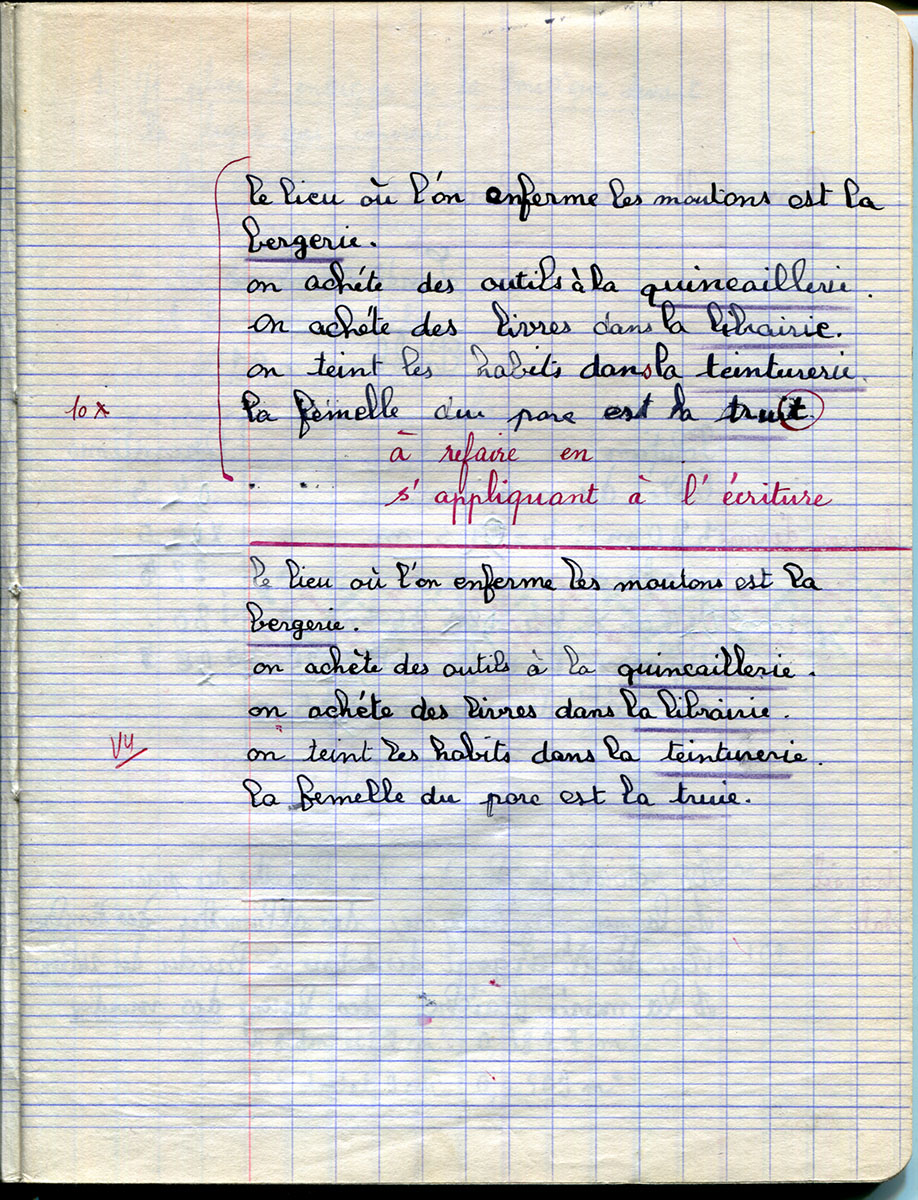 le lieu où l'on enferme les moutons est la
bergerie.
on achéte des outils à la quincaillerie.
on achéte des livres dans la librairie.
on teint les habits dans la teinturerie.
10 x la femelle du porc est la truit.
à refaire en
s'appliquant à l'écriture
le lieu où l'on enferme les moutons est la
bergerie.
on achète des outils à la quincaillerie.
on achéte des livres dans la librairie.
Vu on teint les habits dans la teinturerie.
la femelle du porc est la truie.